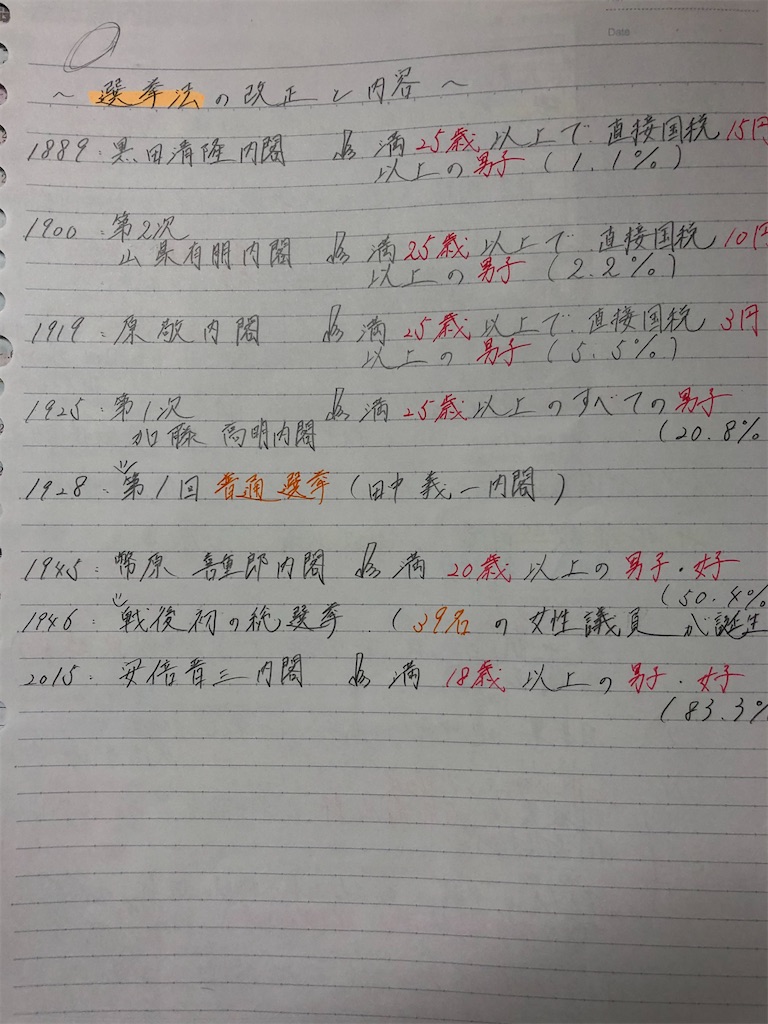 Date
～ 選挙法の改正と内容 ～
1889：黒田清隆内閣 満25歳以上で直接国税15円
以上の男子（1.1%）
1900：第2次
山県有朋内閣 満25歳以上で直接国税10円
以上の男子（2.2%）
1919：原敬内閣 満25歳以上で直接国税3円
以上の男子（5.5%）
1925：第1次 満25歳以上のすべての男子
加藤高明内閣 （20.8%
1928：第1回普通選挙（田中義一内閣）
1945：幣原喜重郎内閣 満20歳以上の男子・女子
（50.4%
1946：戦後初の総選挙（39名の女性議員が誕生
2015：安倍晋三内閣 満18歳以上の男子・女子
（83.3%